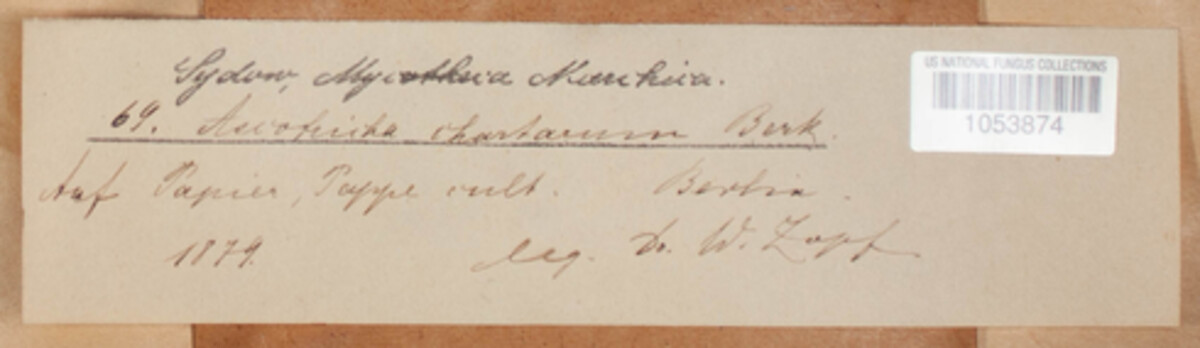 Sydow, Mycotheca Marchica.
US NATIONAL FUNGUS COLLECTIONS
1053874
69. Ascotricha chartarum Berk.
Auf Papier, Pappe cult. Berlin.
1879. leg. Dr. W. Zopf